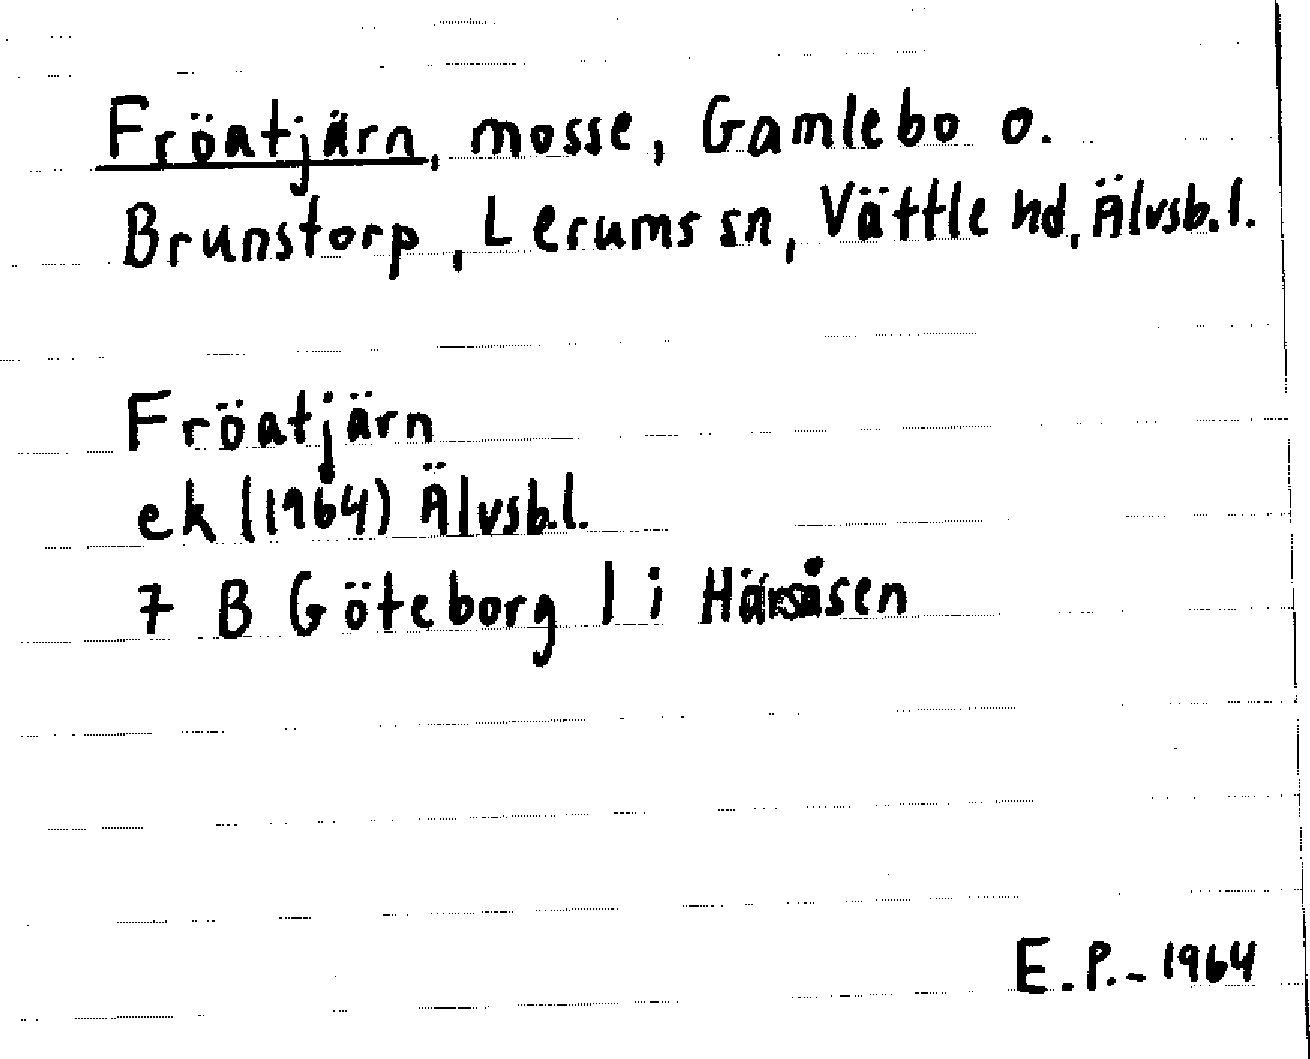 Fröatjärn, mosse, Gamlebo o.
Brunstorp, Lerums sn, Vättle hd, Älvsb.l.
Fröatjärn
ek (1964) Älvsb.l.
7 B Göteborg 1 i Härsåsen
E.P.-1964